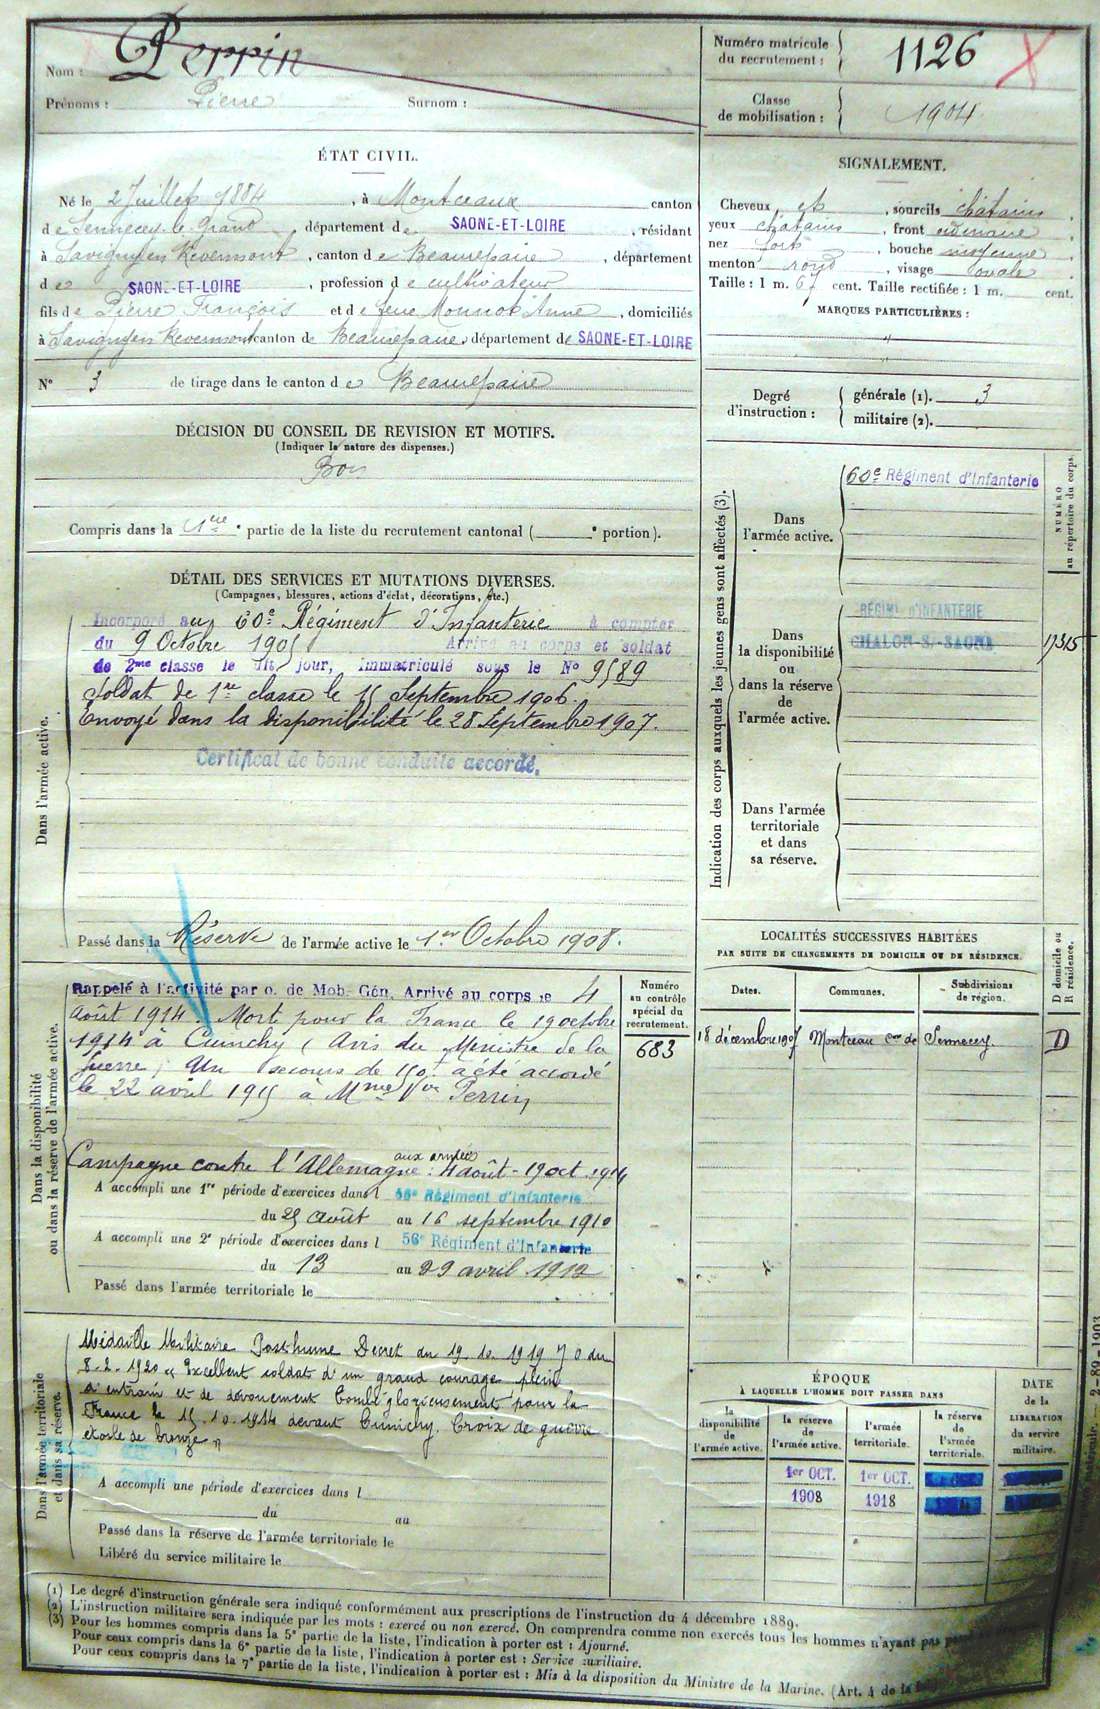 Nom : Perrin
Prénoms : Pierre Surnom :
Numéro matricule
du recrutement :
1126
Classe
de mobilisation :
1904
ÉTAT CIVIL.
Né le 2 Juillet 1884, à Montceaux canton
de Sennecey-le-Grand, département de SAONE-ET-LOIRE, résidant
à Savigny en Revermont, canton de Beaurepaire, département
de SAONE-ET-LOIRE, profession de cultivateur
fils de Pierre François et de feue Monnot Anne, domiciliés
à Savigny en Revermont canton de Beaurepaire, département de SAONE-ET-LOIRE
N° 3 de tirage dans le canton de Beaurepaire
SIGNALEMENT.
Cheveux et, sourcils châtains,
yeux châtains, front ordinaire,
nez fort, bouche moyenne,
menton rond, visage ovale.
Taille : 1 m. 67 cent. Taille rectifiée : 1 m. cent.
MARQUES PARTICULIÈRES :
"
"
Degré
d'instruction :
générale (1). 3
militaire (2).
DÉCISION DU CONSEIL DE REVISION ET MOTIFS.
(Indiquer la nature des dispenses.)
Bon
Compris dans la 1ere partie de la liste du recrutement cantonal ( e portion).
DÉTAIL DES SERVICES ET MUTATIONS DIVERSES.
(Campagnes, blessures, actions d'éclat, décorations, etc.)
Dans l'armée active.
Incorporé au 60e Régiment d'Infanterie à compter
du 9 Octobre 1905 Arrivé au corps et soldat
de 2me classe le dit jour, Immatriculé sous le N° 9589
Soldat de 1re classe le 15 Septembre 1906.
Envoyé dans la disponibilité le 28 Septembre 1907.
Certificat de bonne conduite accordé.
Passé dans la Réserve de l'armée active le 1er Octobre 1908.
Indication des corps auxquels les jeunes gens sont affectés (3).
Dans
l'armée active.
60e Régiment d'Infanterie
NUMÉRO
au répertoire du corps.
Dans
la disponibilité
ou
dans la réserve
de
l'armée active.
RÉGIMt d'INFANTERIE
CHALON-S/-SAONE
Dans l'armée
territoriale
et dans
sa réserve.
LOCALITÉS SUCCESSIVES HABITÉES
PAR SUITE DE CHANGEMENTS DE DOMICILE OU DE RÉSIDENCE.
D domicile ou
R résidence.
Dates. Communes. Subdivisions
de région.
18 décembre 1907 Montceau con de Sennecey. D
Dans la disponibilité
ou dans la réserve de l'armée active.
Numéro
au contrôle
spécial du
recrutement.
683
Rappelé à l'activité par o. de Mob. Gén. Arrivé au corps le 4
août 1914. Mort pour la France le 19 octobre
1914 à Cuinchy (Avis du Ministre de la
Guerre) Un secours de 150f a été accordé
le 22 avril 1915 à Mme Vve Perrin
Campagne contre l'Allemagne : aux armées 4 août - 19 oct. 1914
A accompli une 1re période d'exercices dans l 56e Régiment d'Infanterie
du 25 août au 16 septembre 1910
A accompli une 2e période d'exercices dans l 56e Régiment d'Infanterie
du 13 au 29 avril 1912
Passé dans l'armée territoriale le
Dans l'armée territoriale
et dans sa réserve.
Médaille Militaire Posthume Decret du 19.10.1919 J O du
8.2.1920 « Excellent soldat d'un grand courage plein
d'entrain et de dévouement Tombé glorieusement pour la
France le 15.10.1914 devant Cuinchy. Croix de guerre
étoile de bronze »
A accompli une période d'exercices dans l
du au
Passé dans la réserve de l'armée territoriale le
Libéré du service militaire le
ÉPOQUE
À LAQUELLE L'HOMME DOIT PASSER DANS
DATE
de la
LIBÉRATION
du service
militaire.
la
disponibilité
de
l'armée active.
la réserve
de
l'armée active.
l'armée
territoriale.
la réserve
de
l'armée
territoriale.
1er OCT. 1er OCT.
1908 1918
(1) Le degré d'instruction générale sera indiqué conformément aux prescriptions de l'instruction du 4 décembre 1889.
(2) L'instruction militaire sera indiquée par les mots : exercé ou non exercé. On comprendra comme non exercés tous les hommes n'ayant pas
(3) Pour les hommes compris dans la 5e partie de la liste, l'indication à porter est : Ajourné.
Pour ceux compris dans la 6e partie de la liste, l'indication à porter est : Service auxiliaire.
Pour ceux compris dans la 7e partie de la liste, l'indication à porter est : Mis à la disposition du Ministre de la Marine. (Art. 4 de la